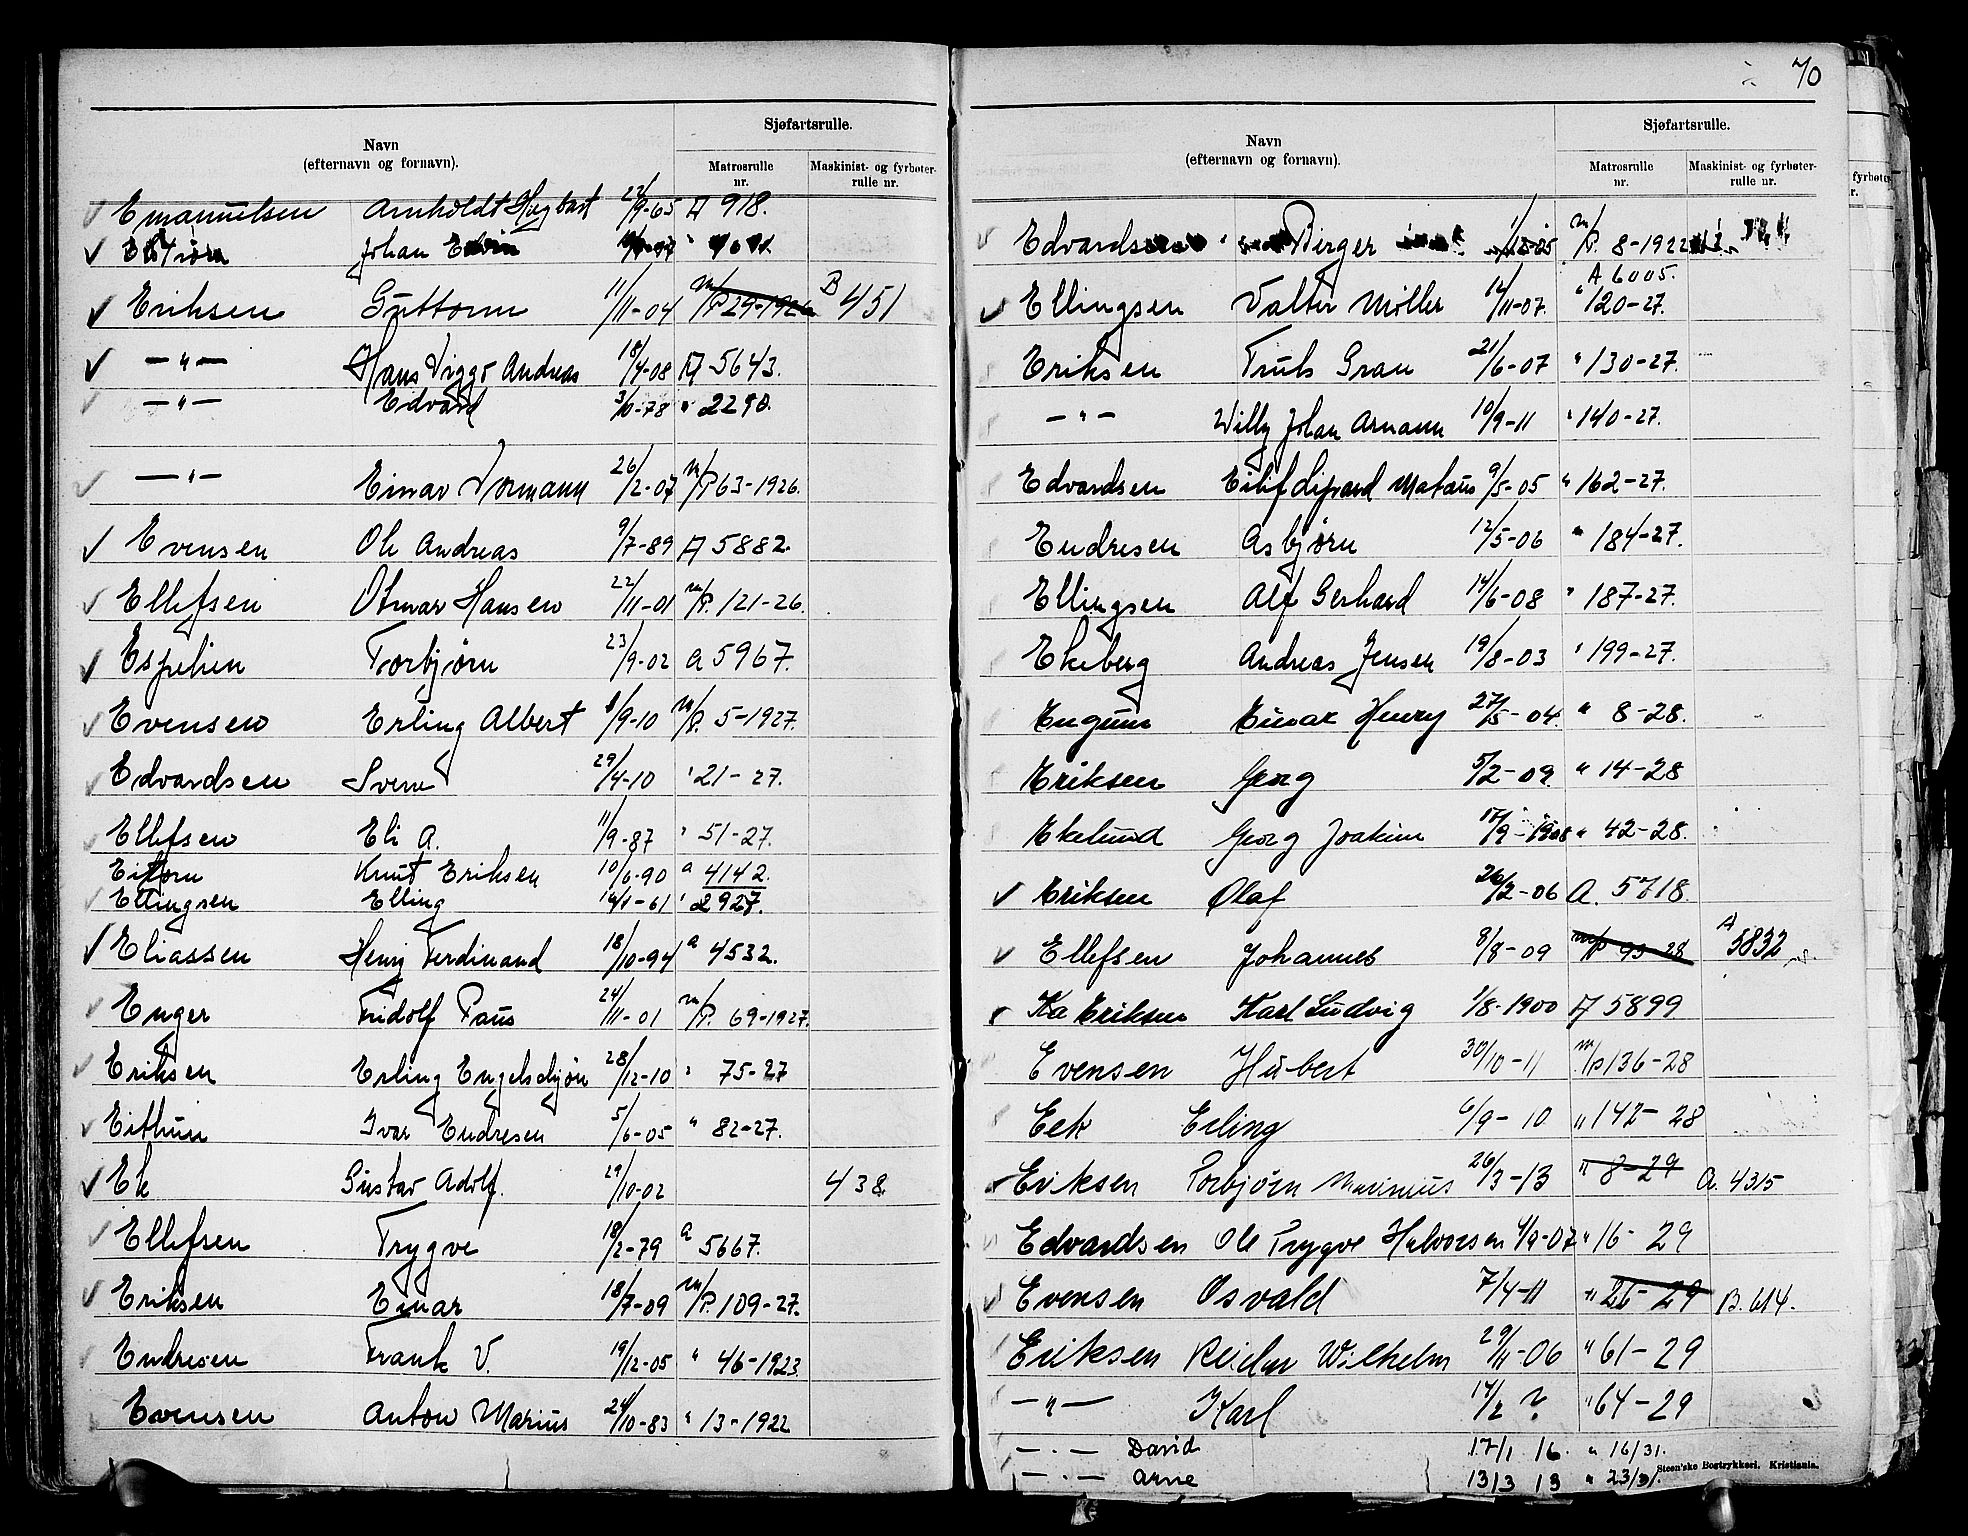 Navn
(efternavn og fornavn).
Sjøfartsrulle.
Matrosrulle nr.
Maskinist- og fyrbøter-rulle nr.
Emanuelsen Arnholdt Hagbart 22/9-65 A 918.
Johan Edvin
Eriksen Guttorm 11/11-04 m/P 29-1926 B 451
— " — Hans Viggo Andreas 18/4-08 A 5643.
— " — Edvard 3/6-78 " 2290.
— " — Einar Normann 26/2-07 m/P 63-1926.
Evensen Ole Andreas 9/7-89 A 5882.
Ellefsen Otmar Hansen 22/11-01 m/P. 121-26.
Espelien Torbjørn 23/9-02 a 5967.
Evensen Erling Albert 8/9-10 m/P. 5-1927.
Edvardsen Svem 29/4-10 " 21-27.
Ellefsen Eli A. 11/9-87 " 51-27.
Knut Eriksen 10/6-90 a 4142.
Ellingsen Elling 14/1-61 " 2927.
Eliassen Henry Ferdinand 18/10-94 a 4532.
Enger Fridolf Paus 24/11-01 m/P. 69-1927.
Eriksen Erling Engelsbjøn 28/12-10 " 75-27
Eithun Ivar Endresen 5/6-05 " 82-27.
Ek Gustav Adolf. 29/10-02 438
Ellefsen Trygve 18/2-79 a 5667.
Eriksen Einar 18/7-09 m/P. 109-27.
Endresen Frank V. 19/12-05 " 46-1923
Evensen Anton Marius 24/10-83 " 13-1922
70
Navn
(efternavn og fornavn).
Sjøfartsrulle.
Matrosrulle nr.
Maskinist- og fyrbøter-rulle nr.
fyrbøter
r.
Edvardsen Birger m/P. 8-1922
A 6005.
Ellingsen Valter Møller 14/11-07. " 120-27.
Eriksen Truls Gran 21/6-07 " 130-27.
— " — Willy Johan Armann 10/9-11 " 140-27.
Edvardsen Eilif Mataus 9/5-05 " 162-27.
Endresen Asbjørn 12/5-06 " 184-27.
Ellingsen Alf Gerhard 14/6-08 " 187-27.
Ekeberg Andreas Jensen 19/8-03 " 199-27.
Engum Einar Henry 27/5-04. " 8-28.
Eriksen Georg 5/2-09. " 14-28
Ekelund Georg Joakim 17/9-1908 " 42-28.
Eriksen Olaf 26/2-06 A. 5718
Ellefsen Johannes 8/8-09 m/P 93-28 A 5832
Ka Eriksen Karl Ludvig 1/8-1900 A 5899
Evensen Hubert 30/10-11 m/P 136-28
Eek Erling 6/9-10 " 142-28
Eriksen Torbjørn Marinius 26/3-13 " 8-29 A. 4315
Edvardsen Ole Trygve Halvorsen 4/9-07 " 16-29
Evensen Osvald 7/4-11 " 26-29 B. 614.
Eriksen Reidar Wilhelm 29/11-06 " 61-29
— " — Karl 14/2 ? " 64-29
— " — David 17/1 16. " 16/31.
— " — Arne 13/3 13 " 23/31.
Steen'ske Bogtrykkeri. Kristiania.